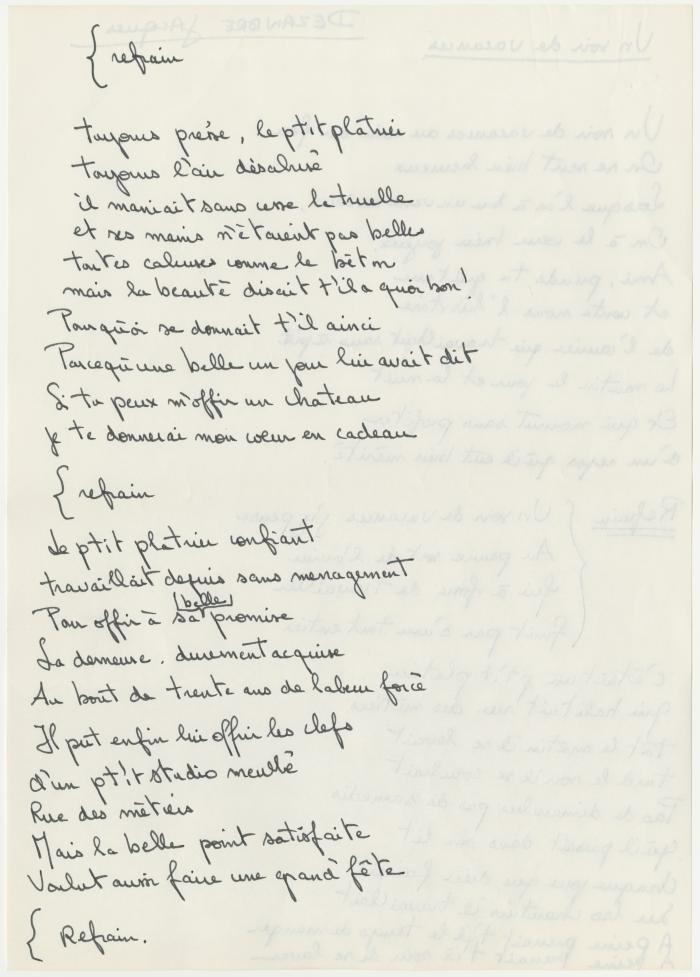 { refrain
toujours préssé, le ptit platrier
toujours l'air désabusé
il maniait sans cesse la truelle
et ses mains n'étaient pas belles
toutes caleuses comme le bèton
mais la beauté disait t'il a quoi bon!
Pourquoi se donnait t'il ainci
Parcequ'une belle un jour lui avait dit
Si tu peux m'offrir un chateau
je te donnerai mon coeur en cadeau
{ refrain
Le ptit platrier confiant
travaillait depuis sans menagement
Pour offrir à sa belle promise
La demeure. durement acquise
Au bout de trente ans de labeur forcé
Il put enfin lui offrir les clefs
d'un pt'it studio meublé
Rue des métiers
Mais la belle point satisfaite
Voulut aussi faire une grand' fête
{ Refrain.